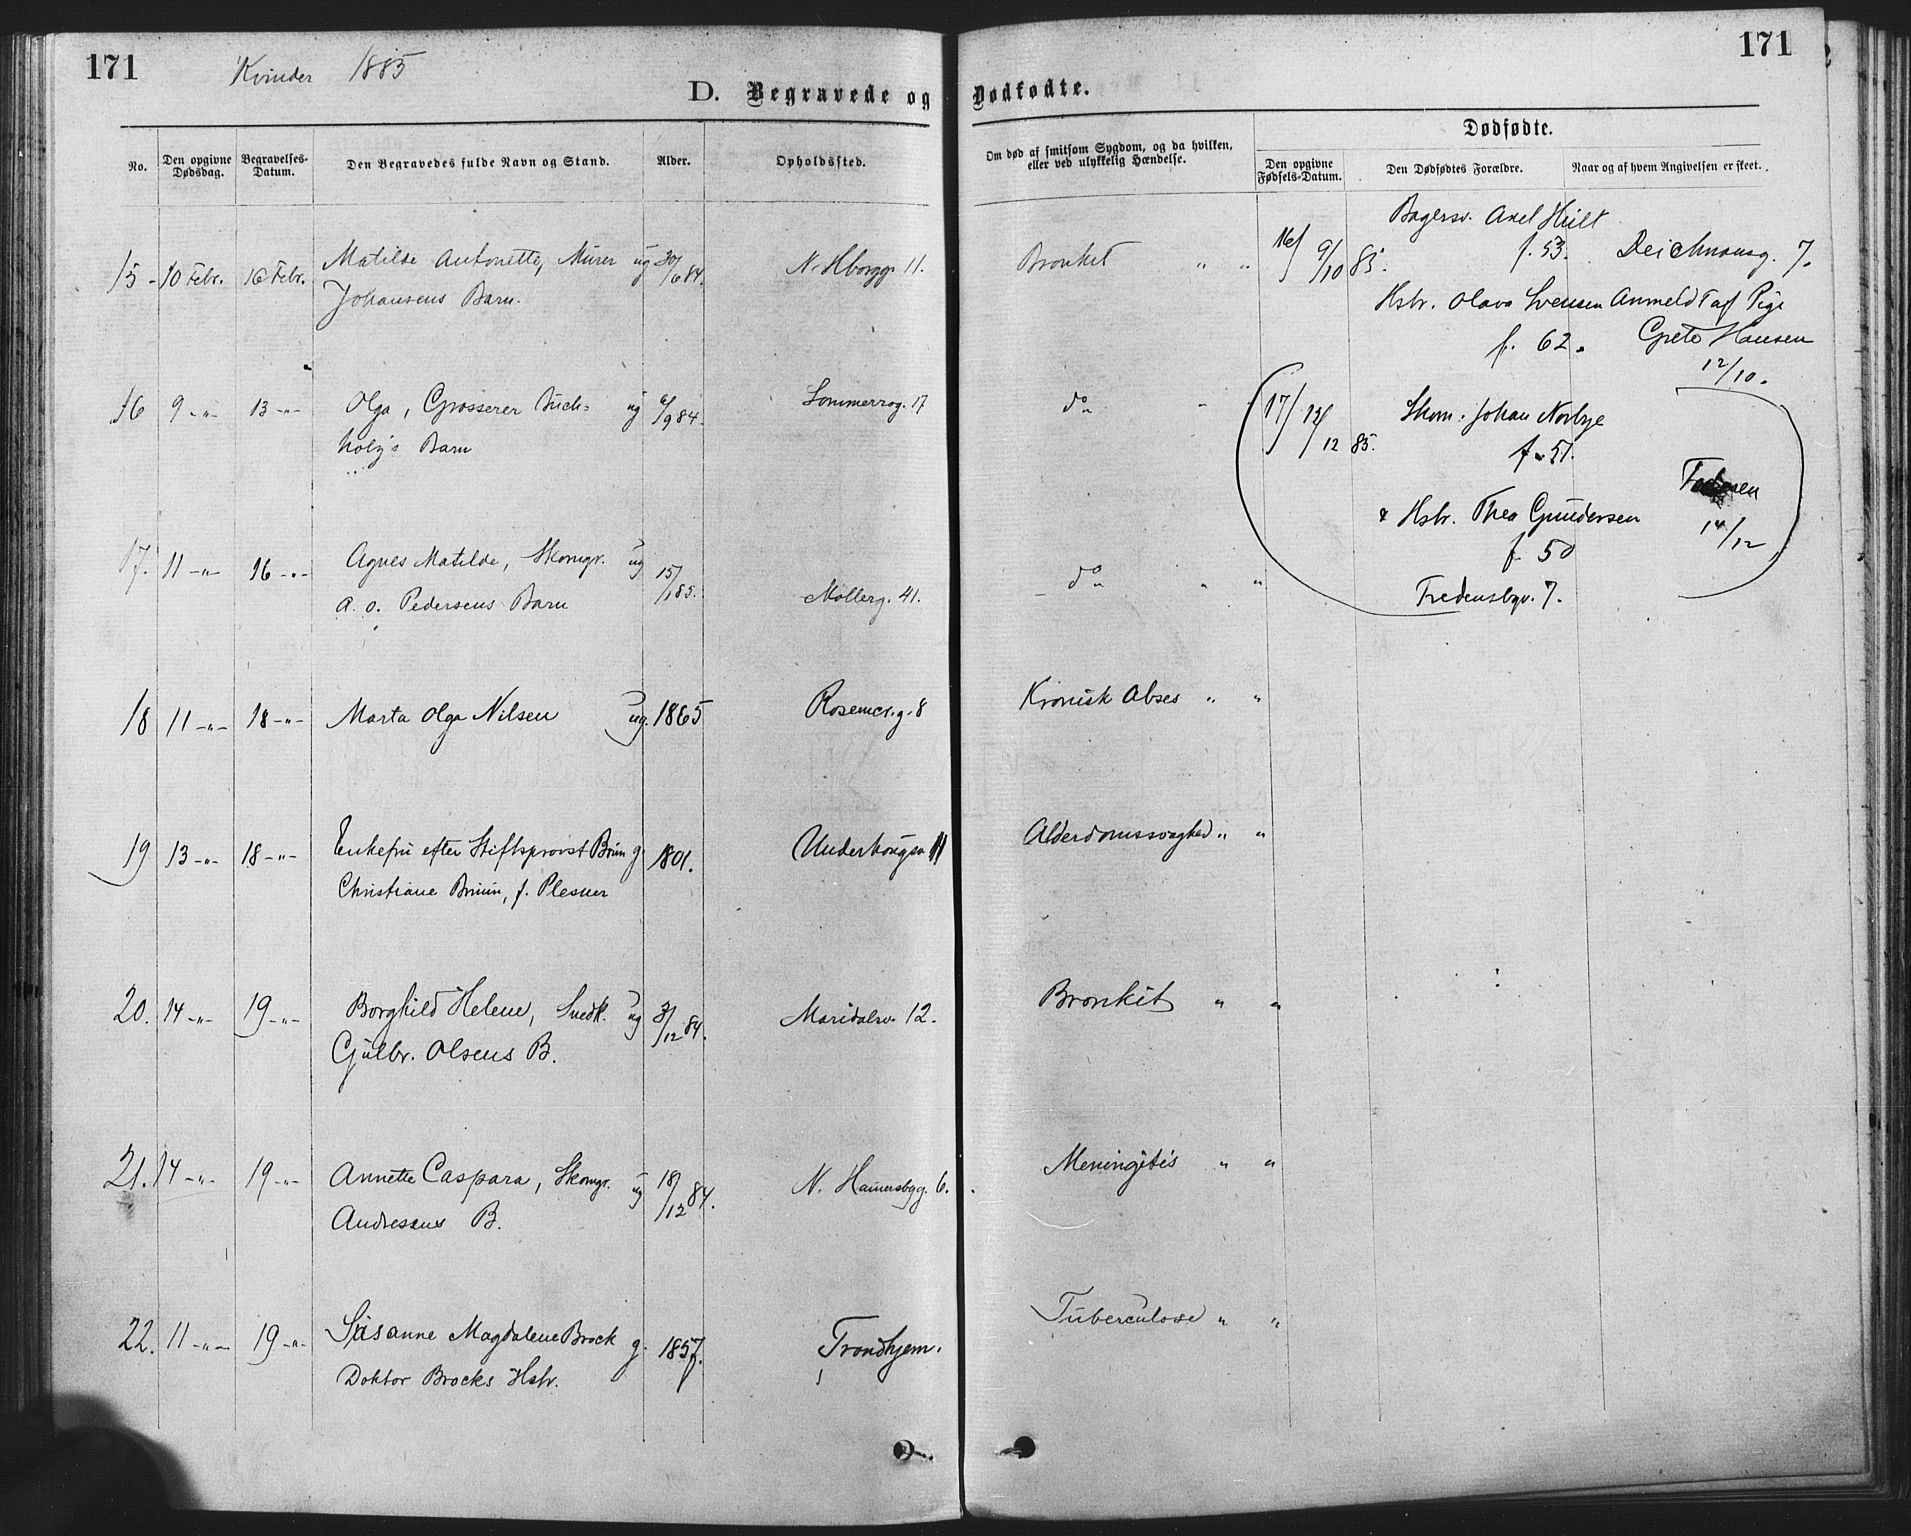 171
Kvinder 1885
171
D. Begravede og Dødfødte.
No.
Den opgivne Dødsdag.
Begravelses-Datum.
Den Begravedes fulde Navn og Stand.
Alder.
Opholdssted.
Om død af smitsom Sygdom, og da hvilken,
eller ved ulykkelig Hændelse.
Dødfødte.
Den opgivne Fødsels-Datum.
Den Dødfødtes Forældre.
Naar og af hvem Angivelsen er skeet.
15 10 Febr. 16 Febr. Matilde Antonette, Murer ug 30/6 84. N. Hborgg. 11. Bronkit " "
Johansens Barn.
16 9 -"- 13 -"- Olga, Grosserer Buch= ug 6/9 84. Sommerrog. 17 do " "
holz's Barn
17. 11 -"- 16 -"- Agnes Matilde, Skomgr. ug 15/1 85. Møllerg. 41. do " "
A. O. Pedersens Barn
18 11 -"- 18 -"- Marta Olga Nilsen ug. 1865 Rosencr.g. 8 Kronisk Abses " "
19 13 -"- 18 -"- Enkefru efter Stiftsprovst Bruun g 1801. Underhaugsv 11 Alderdomssvaghed " "
Christiane Bruun, f. Plesner
20. 14 -"- 19 -"- Borghild Helene, Snedk. ug 3/12 84. Maridalsv. 12. Bronkit " "
Gulbr. Olsens B.
21. 14 -"- 19 -"- Annette Caspara, Skomgr. ug 18/12 84. N. Hamersbgg. 6. Meningitis " "
Andresens B.
22. 11 -"- 19 -"- Susanne Magdalene Brock g. 1857. Trondhjem. Tuberculose " "
Doktor Brocks Hstr.
16/ 9/10 85. Bagersv. Axel Hult
f. 53. Deichmansg. 7.
Hstr. Olava Svensen Anmeldt af Pige
f. 62. Grete Hansen
12/10.
17/ 12/12 85. Skom. Johan Norbye
f. 51.
& Hstr. Thea Gundersen 14/12
f. 50
Fredensbgv. 7.